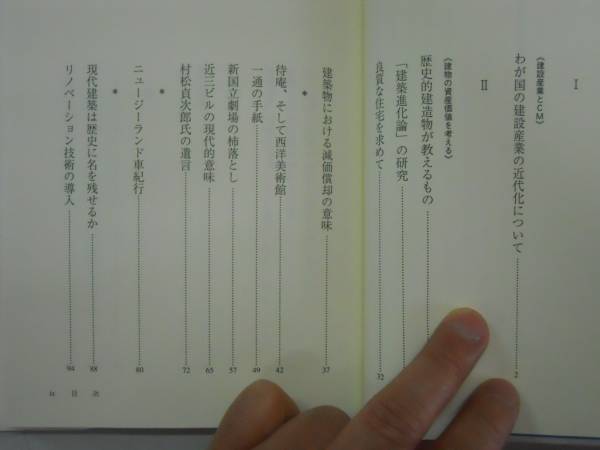 I
《建設産業とCM》
わが国の建設産業の近代化について 2
II
《建物の資産価値を考える》
歴史的建造物が教えるもの
「建築進化論」の研究
良質な住宅を求めて 32
建築物における減価償却の意味 37
*
待庵、そして西洋美術館 42
一通の手紙 49
新国立劇場の杮落とし 57
近三ビルの現代的意味 65
村松貞次郎氏の遺言 72
*
ニュージーランド車紀行 80
*
現代建築は歴史に名を残せるか 88
リノベーション技術の導入 94
目次